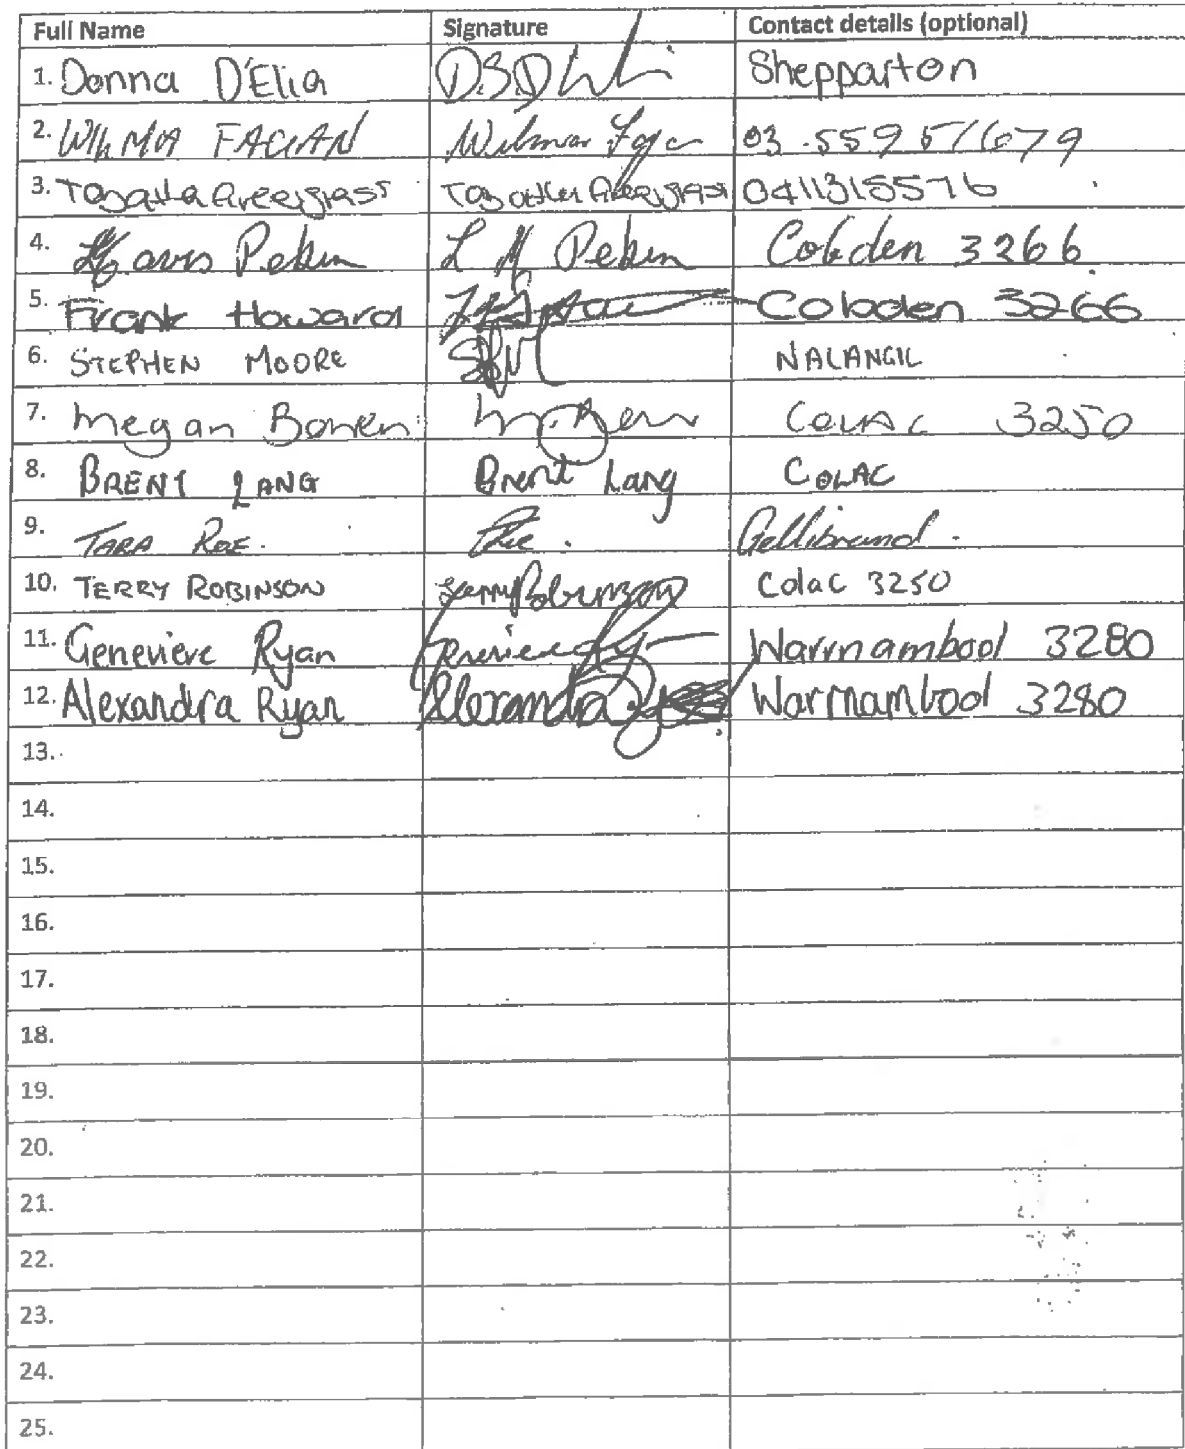 Full Name Signature Contact details (optional)
1. Donna D'Elia Shepparton
2. WILMA FAGAN Wilma 03.55951679
3. 0411315576
4. Pekin L M Pekin Cobden 3266
5. Frank Howard Cobden 3266
6. STEPHEN MOORE NALANGIL
7. Megan Bowen COLAC 3250
8. BRENT LANG Brent Lang COLAC
9. TARA ROE. Gellibrand.
10. TERRY ROBINSON Terry Robinson Colac 3250
11. Genevieve Ryan Genevieve Warrnambool 3280
12. Alexandra Ryan Alexandra Warrnambool 3280
13.
14.
15.
16.
17.
18.
19.
20.
21.
22.
23.
24.
25.